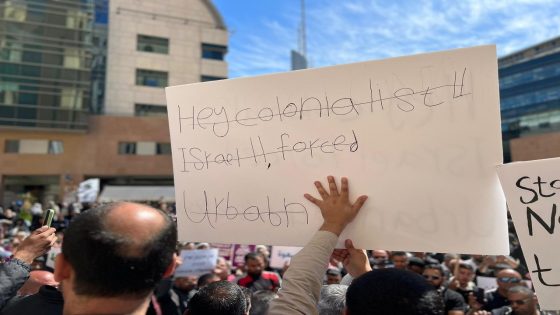 Hey colonialist!!
Israel !!, forced
Urbabn
Sto
N
t